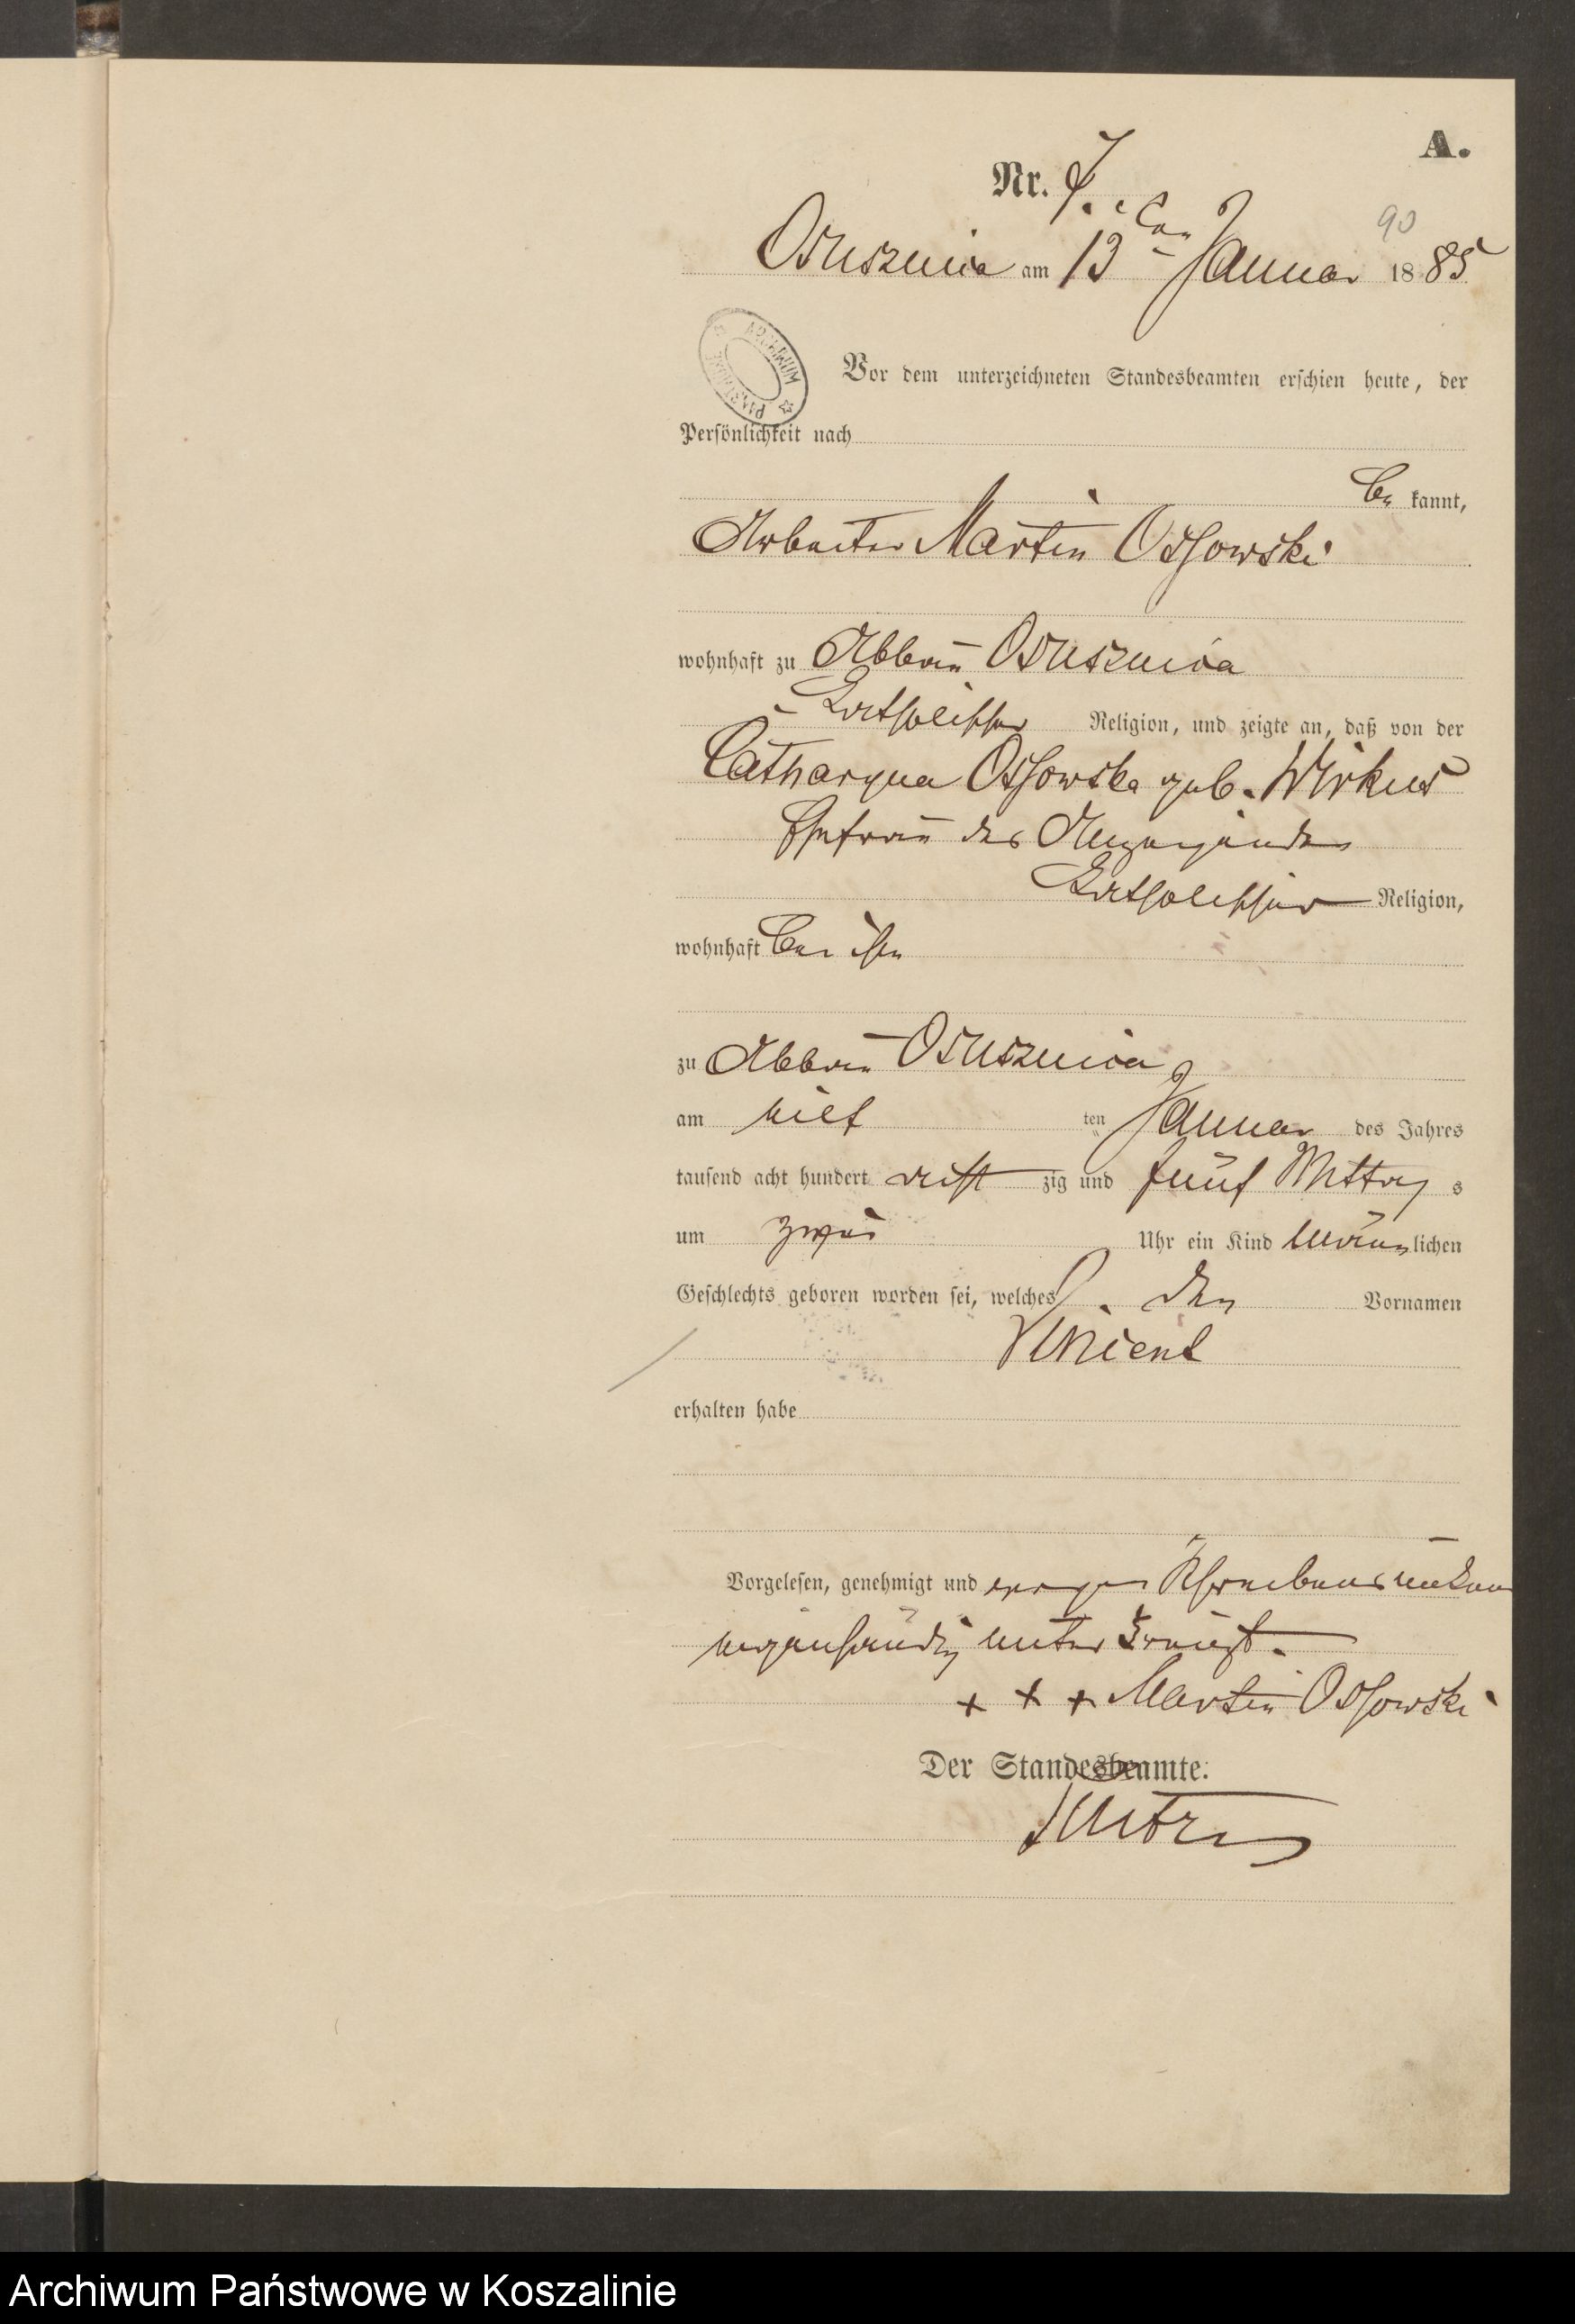 A.
Nr. 7.
90
Osusznica am 13 ten Januar 1885
ARCHIWUM PAŃSTWOWE
Vor dem unterzeichneten Standesbeamten erschien heute, der
Persönlichkeit nach
be kannt,
Arbeiter Martin Ossowski
wohnhaft zu Abbau Osusznica
katholischer Religion, und zeigte an, daß von der
Catharyna Ossowska geb. Wirkus
Ehefrau des Anzeigenden
katholischer Religion,
wohnhaft bei ihm
zu Abbau Osusznica
am elf ten Januar des Jahres
tausend acht hundert acht zig und fünf Mittags
um zwei Uhr ein Kind männlichen
Geschlechts geboren worden sei, welches den Vornamen
Vincent
erhalten habe
Vorgelesen, genehmigt und wegen Schreibens
eigenhändig unterkreuzt.
+ + + Martin Ossowski
Der Standesbeamte:
Archiwum Państwowe w Koszalinie